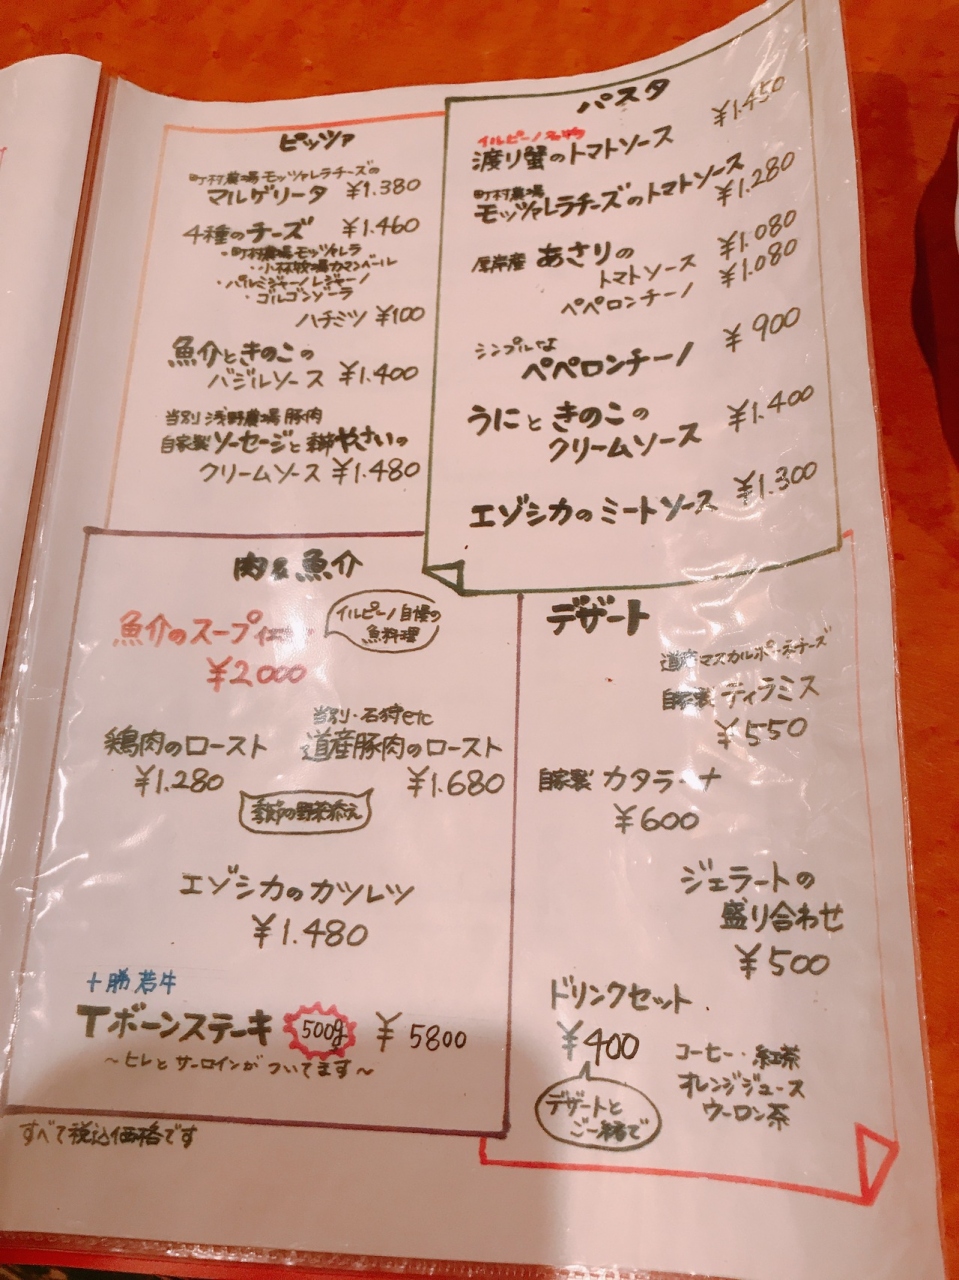 ピッツァ
町村農場モッツァレラチーズの
マルゲリータ ¥1.380
4種のチーズ ¥1.460
・町村農場モッツァレラ
・小林牧場カマンベール
・パルミジャーノレジャーノ
・ゴルゴンゾーラ
ハチミツ ¥100
魚介ときのこの
バジルソース ¥1.400
当別 浅野農場豚肉
自家製ソーセージと季節やさいの
クリームソース ¥1.480
パスタ
イルピーノ名物
渡り蟹のトマトソース ¥1.450
町村農場
モッツァレラチーズのトマトソース ¥1.280
厚岸産 あさりの
トマトソース ¥1.080
ペペロンチーノ ¥1.080
シンプルな
ペペロンチーノ ¥900
うにときのこの
クリームソース ¥1.400
エゾシカのミートソース ¥1.300
肉&魚介
魚介のスープ
¥2.000
イルピーノ自慢の
魚料理
鶏肉のロースト
¥1.280
当別・石狩etc
道産豚肉のロースト
¥1.680
季節の野菜添え
エゾシカのカツレツ
¥1.480
十勝若牛
Tボーンステーキ 500g ¥5800
〜ヒレとサーロインがついてます〜
すべて税込価格です
デザート
道産マスカルポーネチーズ
自家製 ティラミス
¥550
自家製 カタラーナ
¥600
ジェラートの
盛り合わせ
¥500
ドリンクセット
¥400
デザートと
ご一緒で
コーヒー・紅茶
オレンジジュース
ウーロン茶